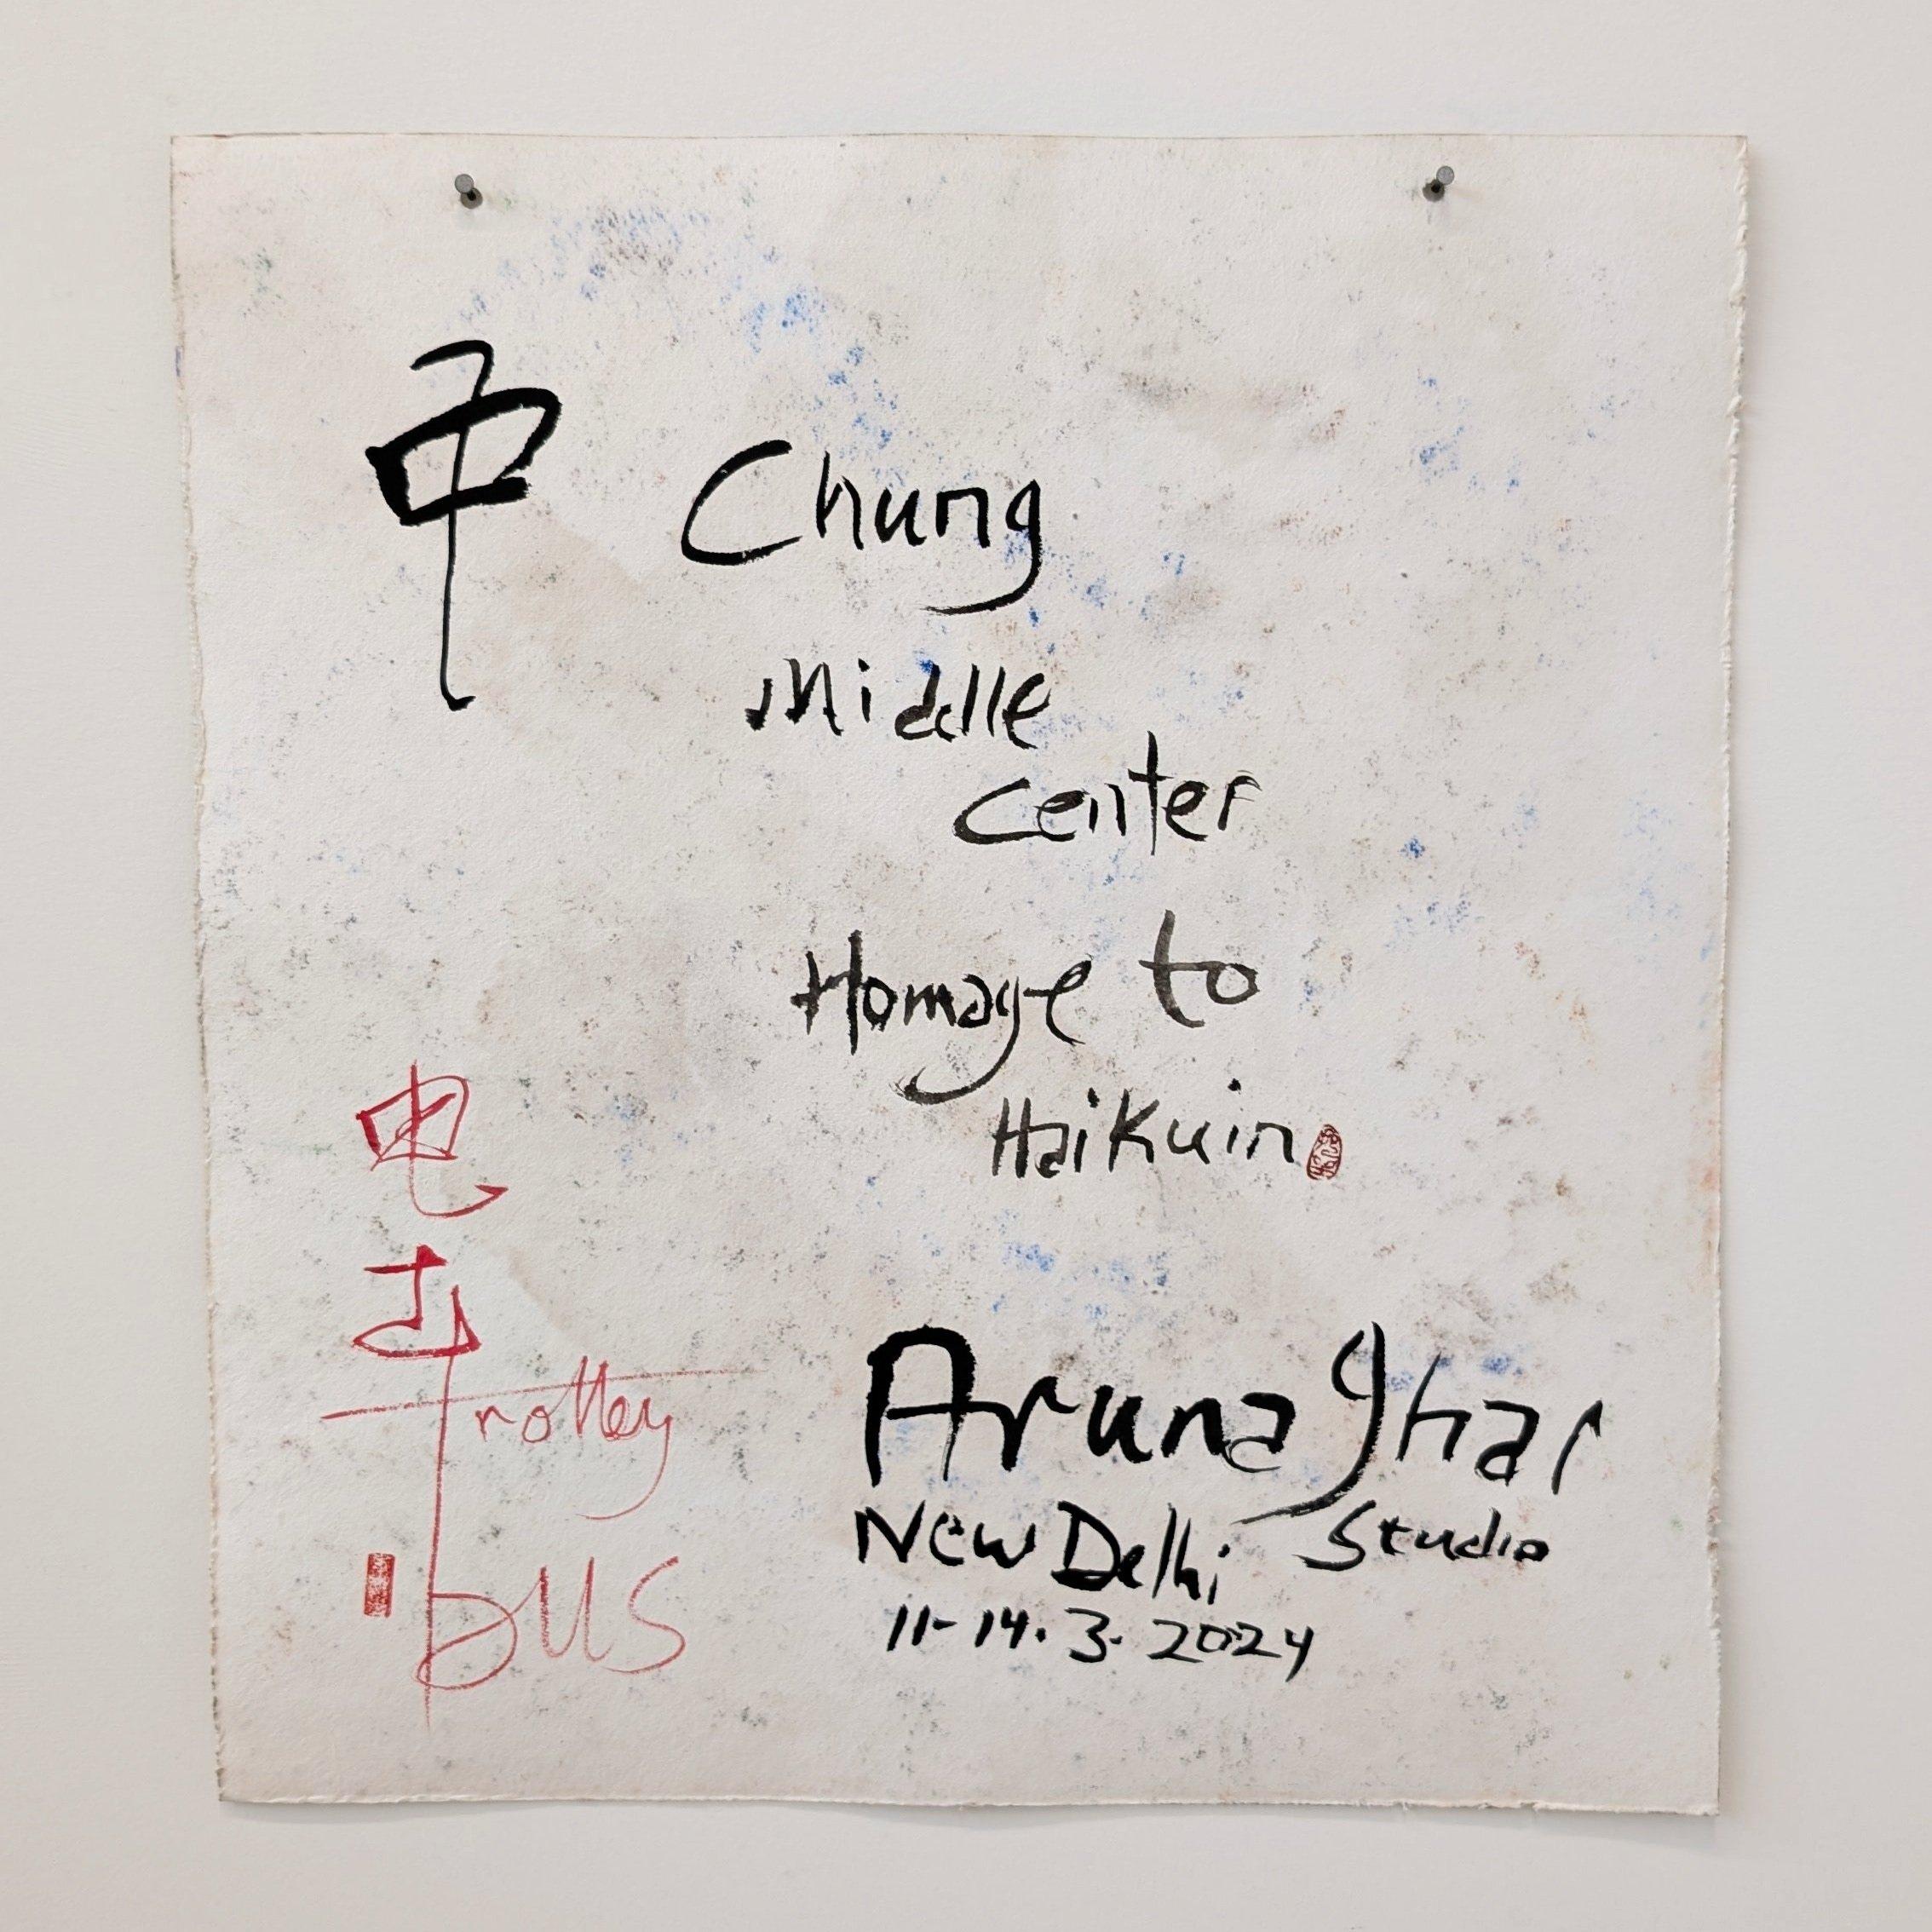 中 Chung
middle
center
Homage to
Haikuin
电
车
Trolley
bus
Aruna Ghar
New Delhi Studio
11-14.3.2024